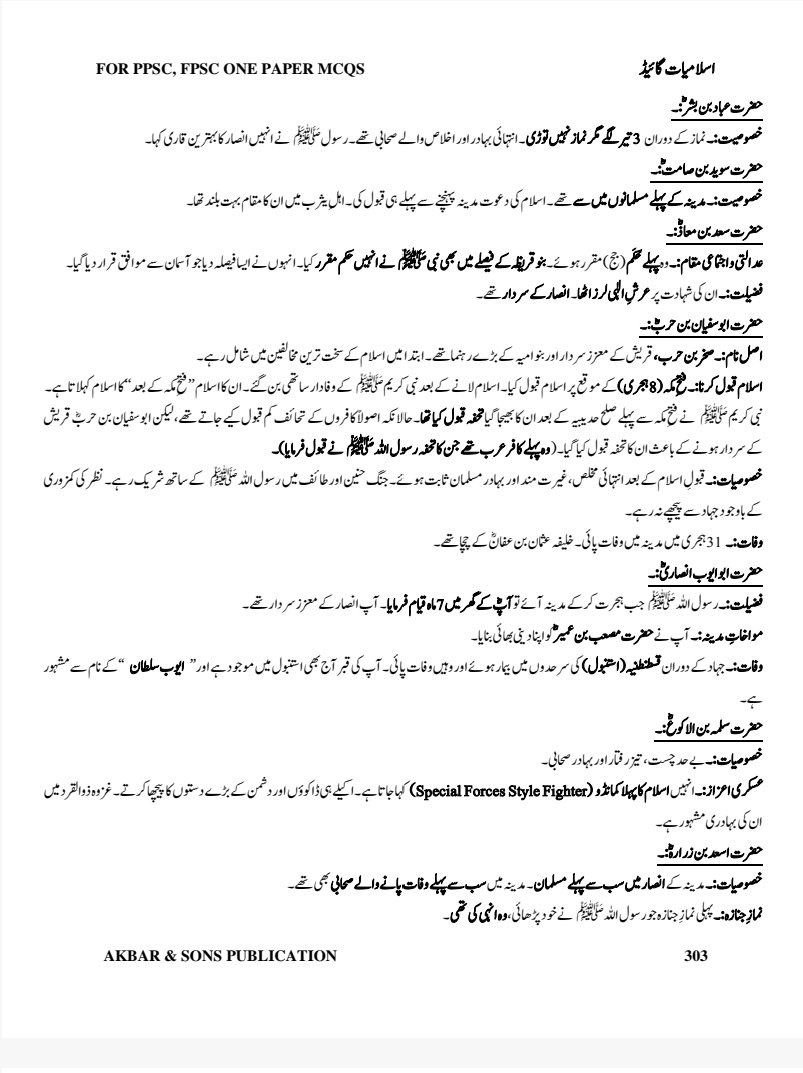 اسلامیات گائیڈ FOR PPSC, FPSC ONE PAPER MCQS
حضرت عباد بن بشرؓ:۔
خصوصیت:۔ نماز کے دوران 3 تیر لگے مگر نماز نہیں توڑی۔ انتہائی بہادر اور اخلاص والے صحابی تھے۔ رسول ﷺ نے انہیں انصار کا بہترین قاری کہا۔
حضرت سوید بن صامتؓ:۔
خصوصیت:۔ مدینہ کے پہلے مسلمانوں میں سے تھے۔ اسلام کی دعوت مدینہ پہنچنے سے پہلے ہی قبول کی۔ اہلِ یثرب میں ان کا مقام بہت بلند تھا۔
حضرت سعد بن معاذؓ:۔
عدالتی و اجتماعی مقام:۔ وہ پہلے حَکَم (جج) مقرر ہوئے۔ بنو قریظہ کے فیصلے میں بھی نبی ﷺ نے انہیں حکم مقرر کیا۔ انہوں نے ایسا فیصلہ دیا جو آسمان سے موافق قرار دیا گیا۔
فضیلت:۔ ان کی شہادت پر عرشِ الٰہی لرز اٹھا۔ انصار کے سردار تھے۔
حضرت ابوسفیان بن حربؓ:۔
اصل نام:۔ صخر بن حرب، قریش کے معزز سردار اور بنو امیہ کے بڑے رہنما تھے۔ ابتدا میں اسلام کے سخت ترین مخالفین میں شامل رہے۔
اسلام قبول کرنا:۔ فتحِ مکہ (8 ہجری) کے موقع پر اسلام قبول کیا۔ اسلام لانے کے بعد نبی کریم ﷺ کے وفادار ساتھی بن گئے۔ ان کا اسلام ”فتحِ مکہ کے بعد“ کا اسلام کہلاتا ہے۔
نبی کریم ﷺ نے فتح مکہ سے پہلے صلح حدیبیہ کے بعد ان کا بھیجا گیا تحفہ قبول کیا تھا۔ حالانکہ اصولاً کافروں کے تحائف کم قبول کیے جاتے تھے، لیکن ابوسفیان بن حربؓ قریش
کے سردار ہونے کے باعث ان کا تحفہ قبول کیا گیا۔ (وہ پہلے کافر عرب تھے جن کا تحفہ رسول اللہ ﷺ نے قبول فرمایا)۔
خصوصیات:۔ قبولِ اسلام کے بعد انتہائی مخلص، غیرت مند اور بہادر مسلمان ثابت ہوئے۔ جنگ حنین اور طائف میں رسول اللہ ﷺ کے ساتھ شریک رہے۔ نظر کی کمزوری
کے باوجود جہاد سے پیچھے نہ رہے۔
وفات:۔ 31 ہجری میں مدینہ میں وفات پائی۔ خلیفہ عثمان بن عفانؓ کے چچا تھے۔
حضرت ابوایوب انصاریؓ:۔
فضیلت:۔ رسول اللہ ﷺ جب ہجرت کر کے مدینہ آئے تو آپؓ کے گھر میں 7 ماہ قیام فرمایا۔ آپ انصار کے معزز سردار تھے۔
مواخاتِ مدینہ:۔ آپ نے حضرت مصعب بن عمیرؓ کو اپنا دینی بھائی بنایا۔
وفات:۔ جہاد کے دوران قسطنطنیہ (استنبول) کی سرحدوں میں بیمار ہوئے اور وہیں وفات پائی۔ آپ کی قبر آج بھی استنبول میں موجود ہے اور ”ایوب سلطان“ کے نام سے مشہور
ہے۔
حضرت سلمہ بن الاکوعؓ:۔
خصوصیات:۔ بے حد چست، تیز رفتار اور بہادر صحابی۔
عسکری اعزاز:۔ انہیں اسلام کا پہلا کمانڈو (Special Forces Style Fighter) کہا جاتا ہے۔ اکیلے ہی ڈاکوؤں اور دشمن کے بڑے دستوں کا پیچھا کرتے۔ غزوہ ذوالقرد میں
ان کی بہادری مشہور ہے۔
حضرت اسعد بن زرارہؓ:۔
خصوصیات:۔ مدینہ کے انصار میں سب سے پہلے مسلمان۔ مدینہ میں سب سے پہلے وفات پانے والے صحابی بھی تھے۔
نمازِ جنازہ:۔ پہلی نمازِ جنازہ جو رسول اللہ ﷺ نے خود پڑھائی، وہ انہی کی تھی۔
AKBAR & SONS PUBLICATION 303